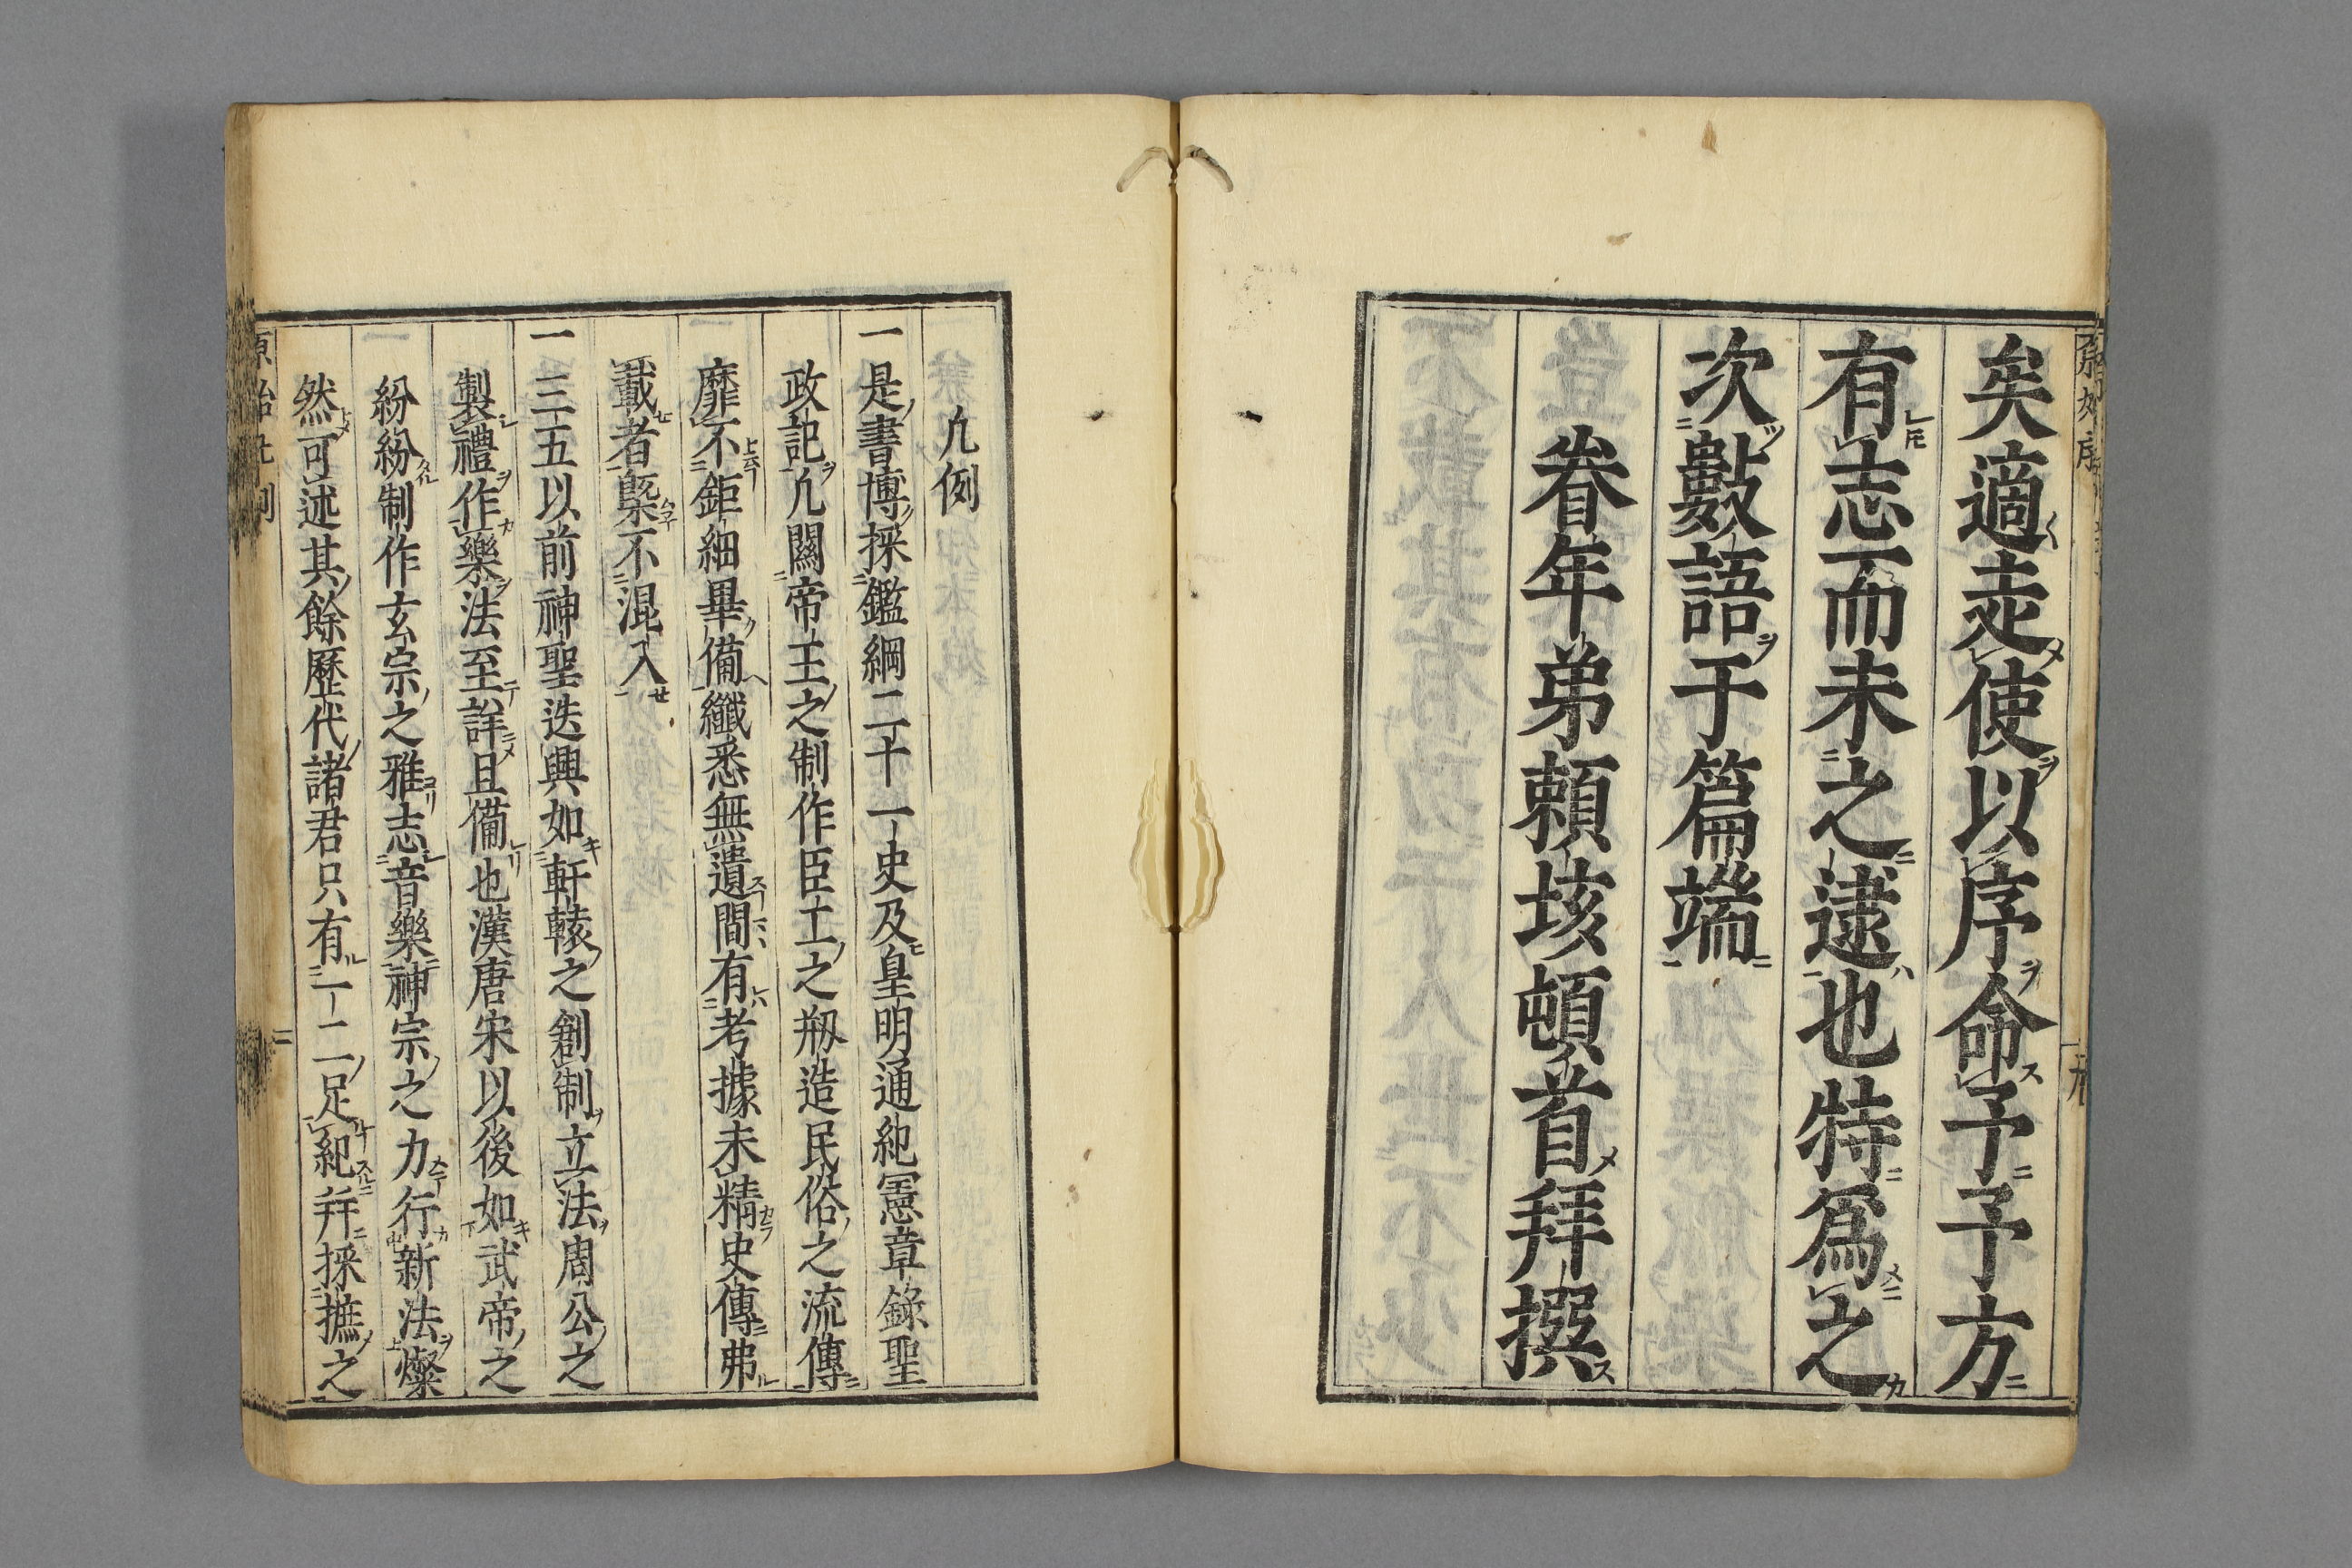 矣適走使以序命予予方
有志而未之逮也特爲之
次數語于篇端
眷年弟賴垓頓首拜撰
凡例
一是書博採鑑綱二十一史及皇明通紀憲章錄聖
政記凡關帝王之制作臣工之剏造民俗之流傳
靡不鉅細畢備纖悉無遺間有考據未精史傳弗
載者槩不混入
一三五以前神聖迭興如軒轅之創制立法周公之
製禮作樂法至詳且備也漢唐宋以後如武帝之
紛紛制作玄宗之雅志音樂神宗之力行新法燦
然可述其餘歷代諸君只有一二足紀幷採摭之